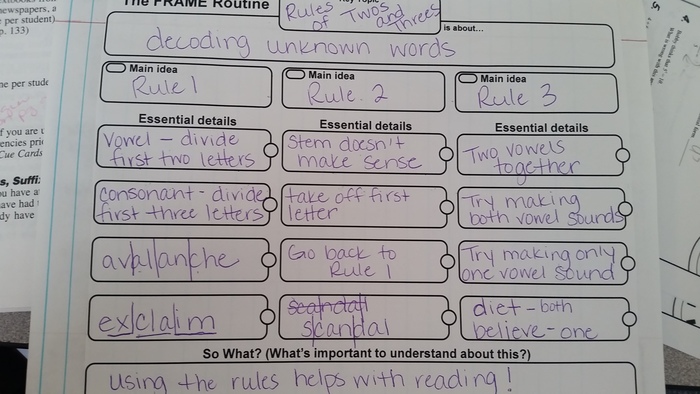 The FRAME Routine
Rules
of Twos
and
Threes
is about...
decoding unknown words
Main idea
Rule 1
Main idea
Rule 2
Main idea
Rule 3
Essential details
Vowel - divide
first two letters
consonant - divide
first three letters
avalanche
ex/claim
Essential details
Stem doesn't
make sense
take off first
letter
Go back to
Rule 1
scandal
Essential details
Two vowels
together
Try making
both vowel sounds
Try making only
one vowel sound
diet - both
believe - one
So What? (What's important to understand about this?)
using the rules helps with reading!
newspapers, a
per student)
p. 133)
per stude
if you are
encies
Cue Cards
s, Suffi
ou have a
ave had
dy have